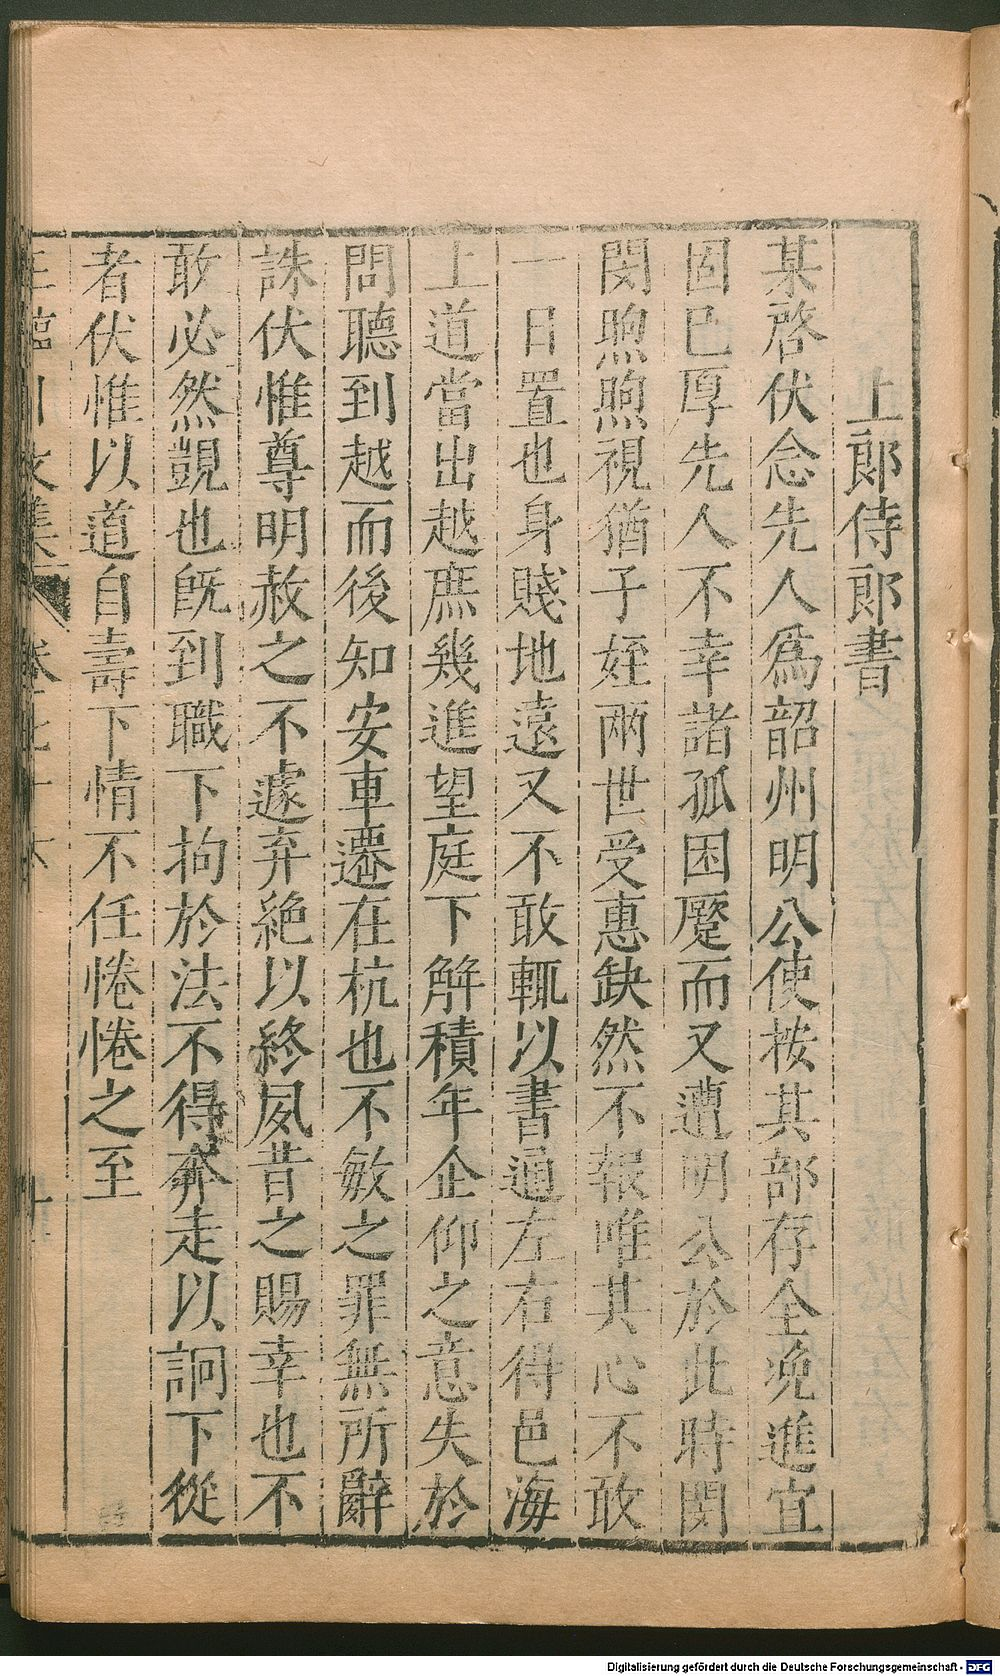 上郎侍郎書
某啓伏念先人爲韶州明公使按其部存全挽進宜
固已厚先人不幸諸孤困蹷而又遭明公於此時閔
閔煦煦視猶子姪兩世受惠缺然不報唯其心不敢
一日置也身賤地遠又不敢輒以書通左右得邑海
上道當出越庶幾進望庭下解積年企仰之意失於
問聽到越而後知安車遷在杭也不敏之罪無所辭
誅伏惟尊明赦之不遽弃絶以終夙昔之賜幸也不
敢必然覬也旣到職下拘於法不得奔走以詗下從
者伏惟以道自壽下情不任惓惓之至
王臨川文集 卷七十六
Digitalisierung gefördert durch die Deutsche Forschungsgemeinschaft - DFG